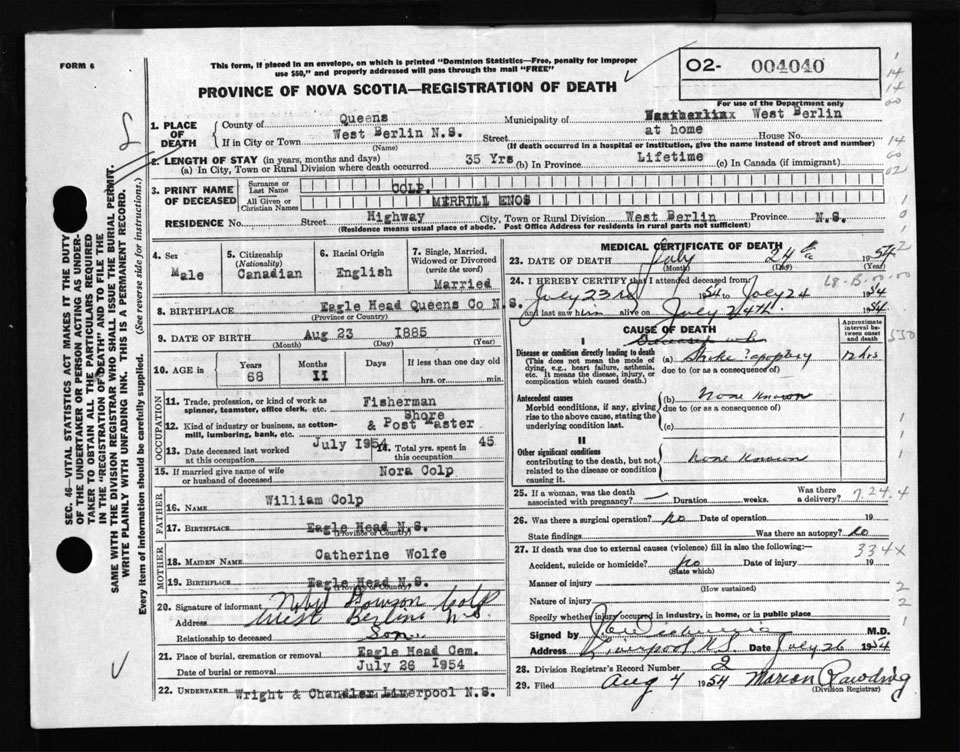 FORM 6
This form, if placed in an envelope, on which is printed "Dominion Statistics—Free, penalty for improper
use $50," and properly addressed will pass through the mail "FREE"
O2- 004040
For use of the Department only
PROVINCE OF NOVA SCOTIA—REGISTRATION OF DEATH
1. PLACE OF DEATH
County of Queens Municipality of West Berlin
If in City or Town West Berlin N.S. Street at home House No.
(Name) (If death occurred in a hospital or institution, give the name instead of street and number)
2. LENGTH OF STAY (in years, months and days)
(a) In City, Town or Rural Division where death occurred 35 Yrs (b) In Province Lifetime (c) In Canada (if immigrant)
3. PRINT NAME OF DECEASED
Surname or Last Name COLP.
All Given or Christian Names MERRILL ENOS
RESIDENCE No. Street Highway City, Town or Rural Division West Berlin Province N.S.
(Residence means usual place of abode. Post Office Address for residents in rural parts not sufficient)
4. Sex Male
5. Citizenship (Nationality) Canadian
6. Racial Origin English
7. Single, Married, Widowed or Divorced (write the word) Married
8. BIRTHPLACE Eagle Head Queens Co N.S.
(Province or Country)
9. DATE OF BIRTH Aug 23 1885
(Month) (Day) (Year)
10. AGE in Years 68 Months 11 Days If less than one day old hrs. or min.
OCCUPATION
11. Trade, profession, or kind of work as spinner, teamster, office clerk, etc. Fisherman
12. Kind of industry or business, as cotton-mill, lumbering, bank, etc. Shore & Post Master
13. Date deceased last worked at this occupation July 1954
14. Total yrs. spent in this occupation 45
15. If married give name of wife or husband of deceased Nora Colp
FATHER
16. NAME William Colp
17. BIRTHPLACE Eagle Head N.S.
(Province or Country)
MOTHER
18. MAIDEN NAME Catherine Wolfe
19. BIRTHPLACE Eagle Head N.S.
20. Signature of informant Colp
Address West Berlin NS
Relationship to deceased Son
21. Place of burial, cremation or removal Eagle Head Cem.
Date of burial or removal July 26 1954
22. UNDERTAKER Wright & Chandler Liverpool N.S.
MEDICAL CERTIFICATE OF DEATH
23. DATE OF DEATH July 24th 1954
(Month) (Day) (Year)
24. I HEREBY CERTIFY that I attended deceased from
July 23rd 1954 to July 24 1954
and last saw him alive on July 24th. 1954
CAUSE OF DEATH
Approximate interval between onset and death
I
Disease or condition directly leading to death (a) Stroke apoplexy 12 hrs
(This does not mean the mode of dying, e.g., heart failure, asthenia, etc. It means the disease, injury, or complication which caused death.)
due to (or as a consequence of)
Antecedent causes (b) none known
Morbid conditions, if any, giving rise to the above cause, stating the underlying condition last.
due to (or as a consequence of)
(c)
II
Other significant conditions none known
contributing to the death, but not related to the disease or condition causing it.
25. If a woman, was the death associated with pregnancy? — Duration weeks. Was there a delivery?
7.24.4
26. Was there a surgical operation? No Date of operation 19
State findings Was there an autopsy? No
27. If death was due to external causes (violence) fill in also the following:—
334X
Accident, suicide or homicide? No Date of injury 19
(State which)
Manner of injury
(How sustained)
Nature of injury
Specify whether injury occurred in industry, in home, or in public place
Signed by M.D.
Address Liverpool N.S. Date July 26 1954
28. Division Registrar's Record Number 2
29. Filed Aug 4 1954 Marion Rawding
(Division Registrar)
SEC. 46—VITAL STATISTICS ACT MAKES IT THE DUTY
OF THE UNDERTAKER OR PERSON ACTING AS UNDER-
TAKER TO OBTAIN ALL THE PARTICULARS REQUIRED
IN THE "REGISTRATION OF DEATH" AND TO FILE THE
SAME WITH THE DIVISION REGISTRAR WHO SHALL ISSUE THE BURIAL PERMIT.
WRITE PLAINLY WITH UNFADING INK. THIS IS A PERMANENT RECORD.
Every item of information should be carefully supplied. (See reverse side for instructions.)